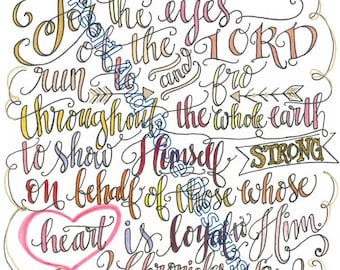 For the eyes
of the LORD
run to and fro
throughout the whole earth
to show Himself STRONG
on behalf of those whose
heart is loyal to Him
2 Chronicles